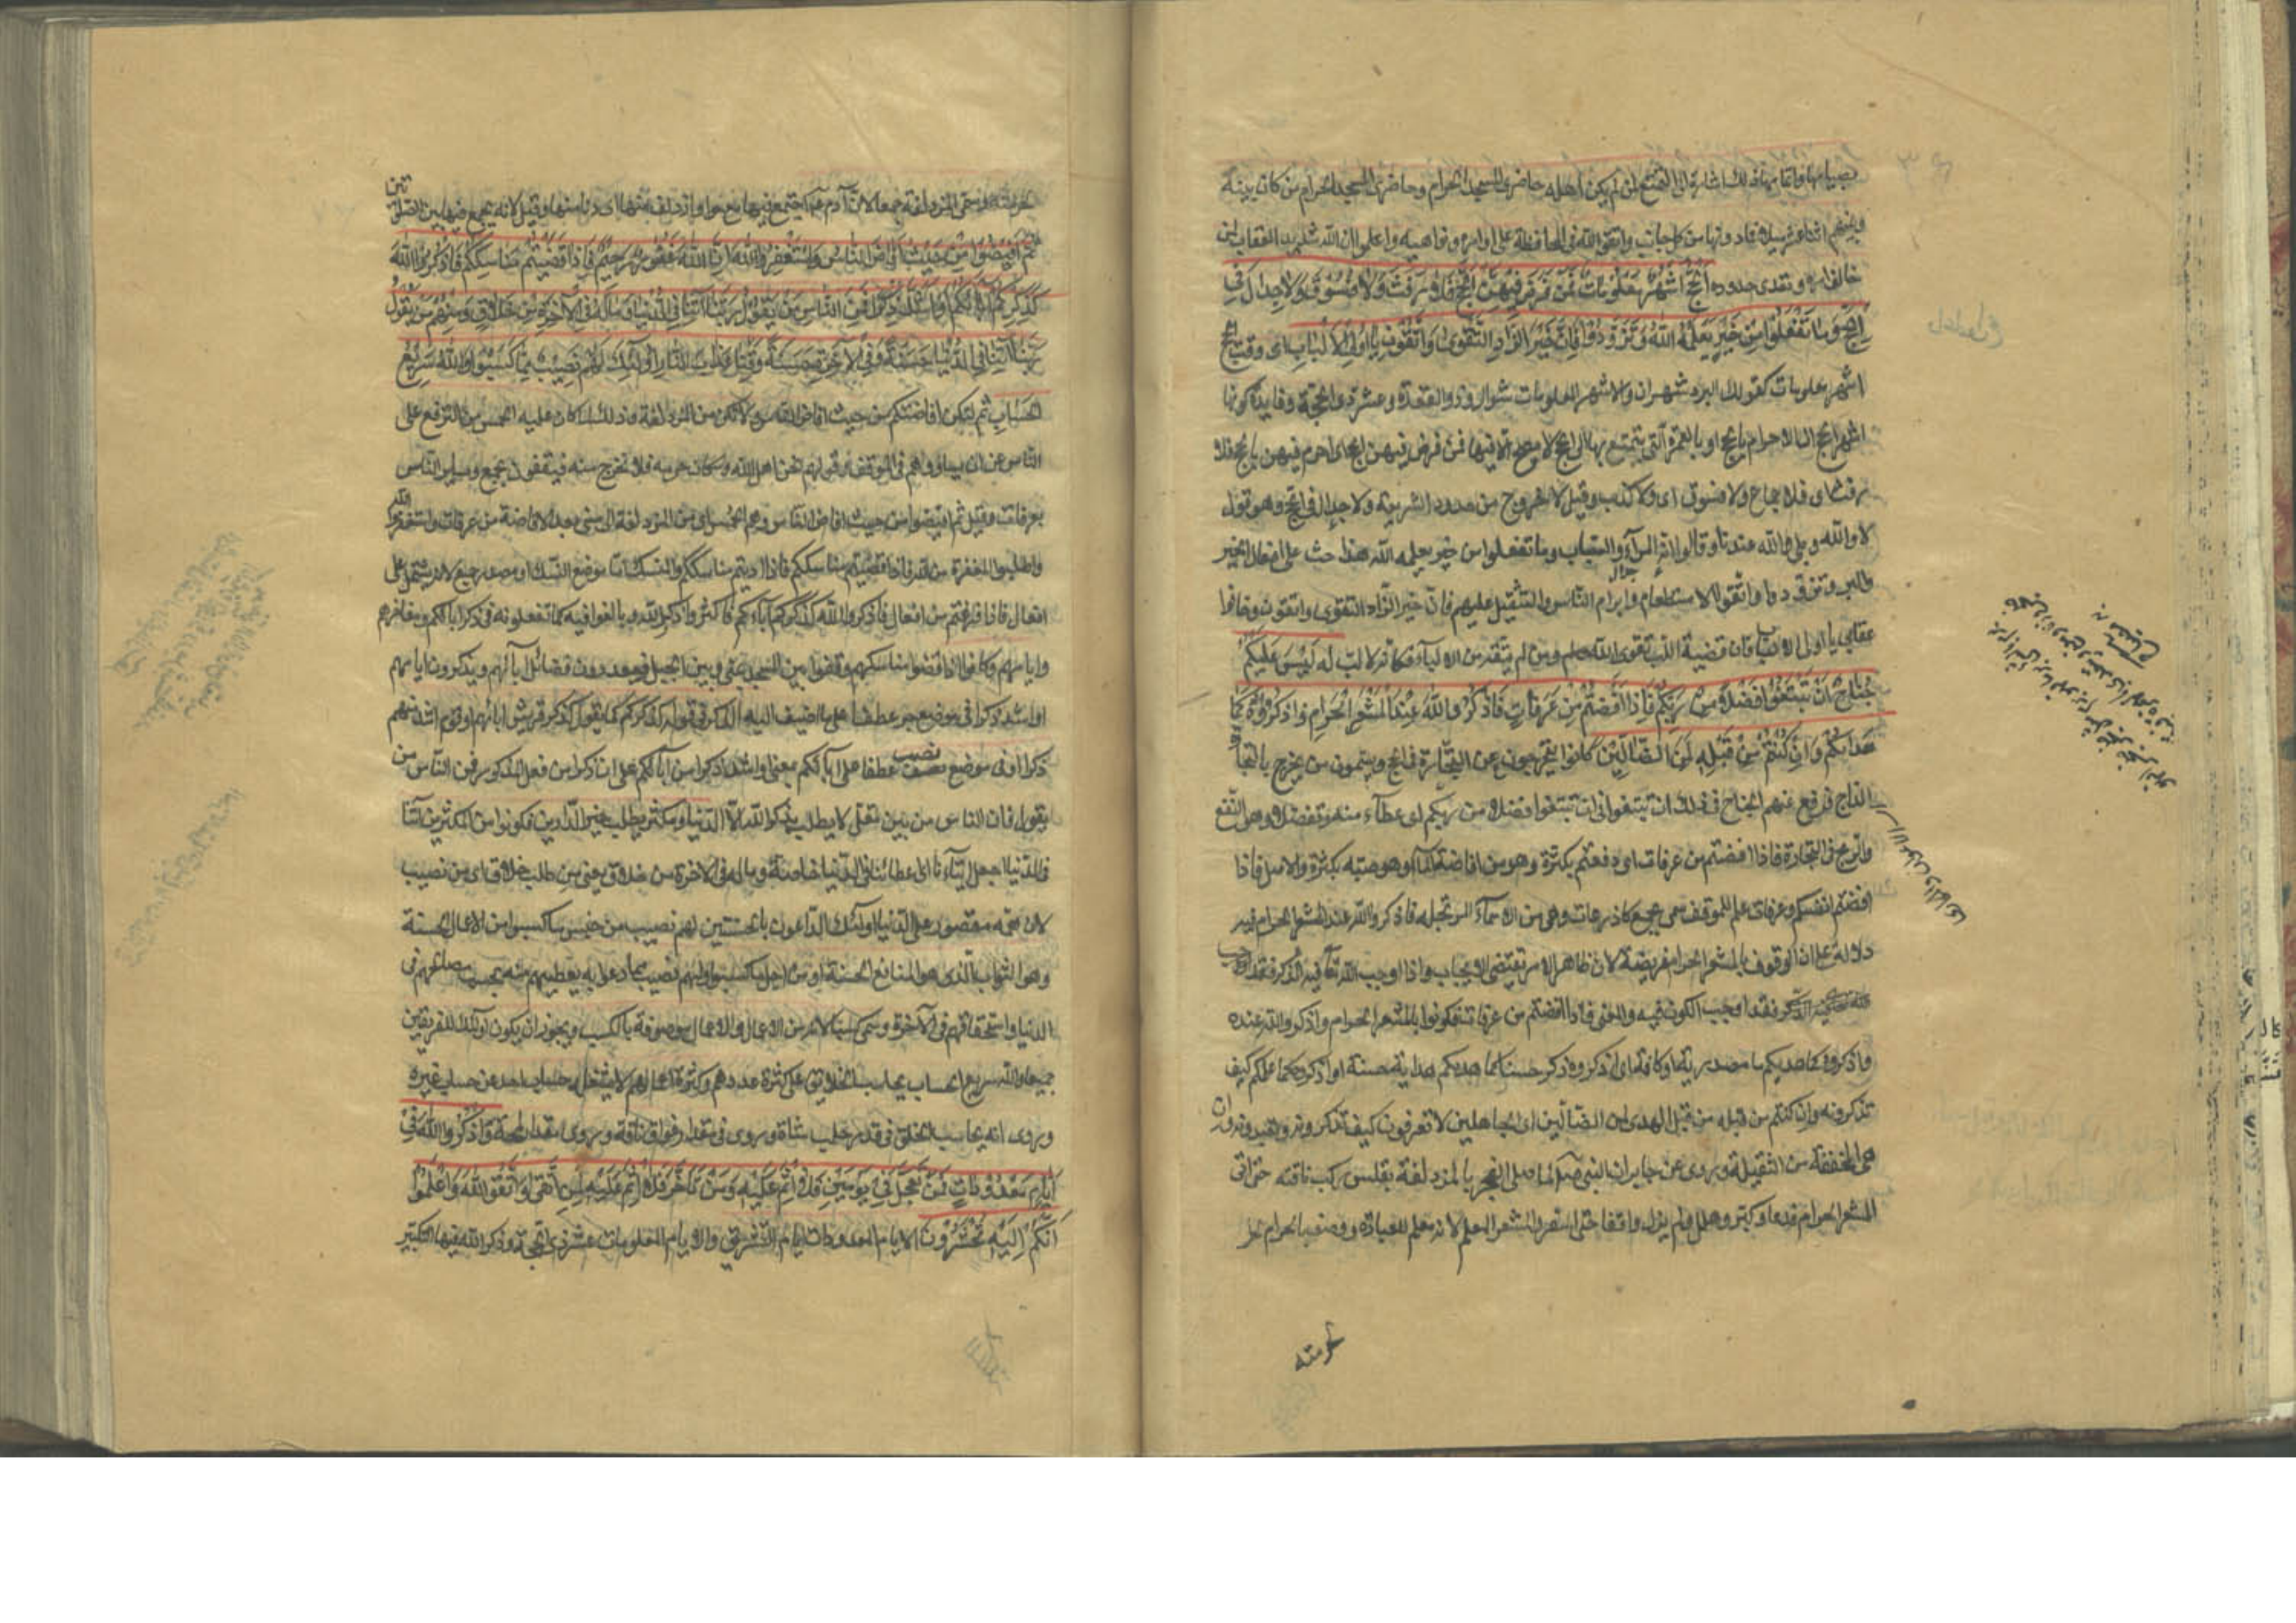 ذلك اشارة الى التمتع لمن لم يكن اهله حاضرى المسجد الحرام وحاضرى المسجد الحرام من كان بينه
وبينهم اثنا عشر ميلا فما دونها من كل جانب واتقوا الله فى المحافظة على اوامره ونواهيه واعلموا ان الله شديد العقاب لمن
خالف امره وتعدى حدوده الْحَجُّ اَشْهُرٌ مَعْلُومَاتٌ فَمَنْ فَرَضَ فِيهِنَّ الْحَجَّ فَلَا رَفَثَ وَلَا فُسُوقَ وَلَا جِدَالَ فِي
الْحَجِّ وَمَا تَفْعَلُوا مِنْ خَيْرٍ يَعْلَمْهُ اللهُ وَتَزَوَّدُوا فَاِنَّ خَيْرَ الزَّادِ التَّقْوَى وَاتَّقُونِ يَا اُولِي الْاَلْبَابِ اى وقت الحج
اشهر معلومات كقولك البرد شهران والاشهر المعلومات شوال وذو القعدة وعشر ذى الحجة وفايدة كونها
اشهر الحج ان الاحرام بالحج او بالعمرة التى يتمتع بها الى الحج لا يصح الا فيها فمن فرض فيهن الحج اى احرم فيهن بالحج فلا
رفث اى فلا جماع ولا فسوق اى ولا كذب وقيل لا خروج من حدود الشريعة ولا جدال فى الحج وهو قول
لا والله وبلى والله عندنا وقالوا انه المرآء والسباب وما تفعلوا من خير يعلمه الله هذا حث على افعال الخير
والبر وتزودوا واتقوا الاستطعام وابرام الناس والتثقيل عليهم فان خير الزاد التقوى واتقون وخافوا
عقابى يا اولى الالباب فان قضية اللب تقوى الله ومن لم يتقه من الالباء فكانه لا لب له لَيْسَ عَلَيْكُمْ
جُنَاحٌ اَنْ تَبْتَغُوا فَضْلًا مِنْ رَبِّكُمْ فَاِذَا اَفَضْتُمْ مِنْ عَرَفَاتٍ فَاذْكُرُوا اللهَ عِنْدَ الْمَشْعَرِ الْحَرَامِ وَاذْكُرُوهُ كَمَا
هَدَاكُمْ وَاِنْ كُنْتُمْ مِنْ قَبْلِهِ لَمِنَ الضَّالِّينَ كانوا يتحرجون عن التجارة فى الحج ويسمون من يخرج بالتجارة
الداج فرفع عنهم الجناح فى ذلك ان تبتغوا فى ان تبتغوا فضلا من ربكم اى عطاء منه وتفضلا وهو النفع
والربح فى التجارة فاذا افضتم من عرفات اى دفعتم بكثرة وهو من افاضة المآء وهو صبه بكثرة والاصل فاذا
افضتم انفسكم وعرفات علم للموقف سمى بجمع كاذرعات وهى من الاسمآء المرتجلة فاذكروا الله عند المشعر الحرام فيه
دلالة على ان الوقوف بالمشعر الحرام فريضة لان ظاهر الامر يقتضى الايجاب واذا اوجب الله تعالى فيه الذكر فقد اوجب
الذكر فقد اوجب الكون فيه والمعنى فاذا افضتم من عرفات فكونوا بالمشعر الحرام واذكروا الله عنده
واذكروه كما هديكم ما مصدرية او كافة اى اذكروه ذكرا حسنا كما هديكم هداية حسنة او اذكروه كما علمكم كيف
تذكرونه وان كنتم من قبله من قبل الهدى لمن الضالين اى الجاهلين لا تعرفون كيف تذكرونه وتعبدونه وان
هى المخففة من الثقيلة وروى عن جابر ان النبى لما صلى الفجر بالمزدلفة بغلس ركب ناقته حتى اتى
المشعر الحرام فدعا وكبر وهلل ولم يزل واقفا حتى اسفر والمشعر المعلم لانه معلم للعبادة ووصف بالحرام
لحرمته
لحرمته وسمى المزدلفة جمعا لان آدم اجتمع فيها مع حوا وازدلف منها اى دنا منها وقيل لانه يجمع فيها بين الصلوتين
ثُمَّ اَفِيضُوا مِنْ حَيْثُ اَفَاضَ النَّاسُ وَاسْتَغْفِرُوا اللهَ اِنَّ اللهَ غَفُورٌ رَحِيمٌ فَاِذَا قَضَيْتُمْ مَنَاسِكَكُمْ فَاذْكُرُوا اللهَ
كَذِكْرِكُمْ آبَاءَكُمْ اَوْ اَشَدَّ ذِكْرًا فَمِنَ النَّاسِ مَنْ يَقُولُ رَبَّنَا آتِنَا فِي الدُّنْيَا وَمَا لَهُ فِي الْآخِرَةِ مِنْ خَلَاقٍ وَمِنْهُمْ مَنْ يَقُولُ
رَبَّنَا آتِنَا فِي الدُّنْيَا حَسَنَةً وَفِي الْآخِرَةِ حَسَنَةً وَقِنَا عَذَابَ النَّارِ اُولَئِكَ لَهُمْ نَصِيبٌ مِمَّا كَسَبُوا وَاللهُ سَرِيعُ
الْحِسَابِ ثم لتكن افاضتكم من حيث افاض الناس ولا تكن من المزدلفة وذلك لما كان عليه الحمس من الترفع على
الناس عن ان يساووهم فى الموقف وقولهم نحن اهل الله وسكان حرمه فلا نخرج منه فيقفون بجمع وساير الناس
بعرفات وقيل ثم افيضوا من حيث افاض الناس وهم الحمس اى من المزدلفة الى منى بعد الافاضة من عرفات واستغفروا الله
واطلبوا المغفرة من الله فاذا قضيتم مناسككم فاذا اديتم مناسككم والمنسك اما موضع النسك او مصدر جمع لانه يشتمل على
افعال فاذا فرغتم من افعال فاذكروا الله كذكركم آباءكم فاكثروا ذكر الله وبالغوا فيه كما تفعلونه فى ذكر آبائكم ومفاخرهم
وايامهم وكانوا اذا قضوا مناسكهم وقفوا بين المسجد بمنى وبين الجبل فيعددون فضائل آبائهم ويذكرون ايامهم
او اشد ذكرا فى موضع جر عطف على ما اضيف اليه الذكر فى قوله كذكركم كما يقول كذكر قريش ابائهم او قوم اشد منهم
ذكرا او فى موضع نصب عطفا على آبائكم بمعنى او اشد ذكرا من آبائكم على ان ذكرا من فعل المذكور فمن الناس من
يقول فان الناس من بين مقل لا يطلب بذكر الله الا الدنيا ومكثر يطلب خير الدارين فكونوا من المكثرين آتنا
فى الدنيا اجعل ايتآءنا اى عطائنا فى الدنيا خاصة وما له فى الاخرة من خلاق يعنى من طلب خلاق اى من نصيب
لان همه مقصور على الدنيا اولئك الداعون بالحسنتين لهم نصيب من جنس ما كسبوا من الاعمال الحسنة
وهو الثواب الذى هو المنافع الحسنة او من اجل ما كسبوا او لهم نصيب مما دعوا به يعطيهم منه بحسب مصالحهم فى
الدنيا واستحقاقهم فى الآخرة وسمى كسبا لانه من الاعمال والاعمال موصوفة بالكسب ويجوز ان يكون اولئك للفريقين
جميعا والله سريع الحساب يحاسب الخلائق على كثرة عددهم وكثرة اعمالهم لا يشغله حساب احد عن حساب غيره
وروى انه يحاسب الخلق فى قدر حلب شاة وروى فى مقدار فواق ناقة وروى بمقدار لمحة وَاذْكُرُوا اللهَ فِي
اَيَّامٍ مَعْدُودَاتٍ فَمَنْ تَعَجَّلَ فِي يَوْمَيْنِ فَلَا اِثْمَ عَلَيْهِ وَمَنْ تَاَخَّرَ فَلَا اِثْمَ عَلَيْهِ لِمَنِ اتَّقَى وَاتَّقُوا اللهَ وَاعْلَمُوا
اَنَّكُمْ اِلَيْهِ تُحْشَرُونَ الايام المعدودات ايام التشريق والايام المعلومات عشر ذى الحجة وذكر الله فيها التكبير